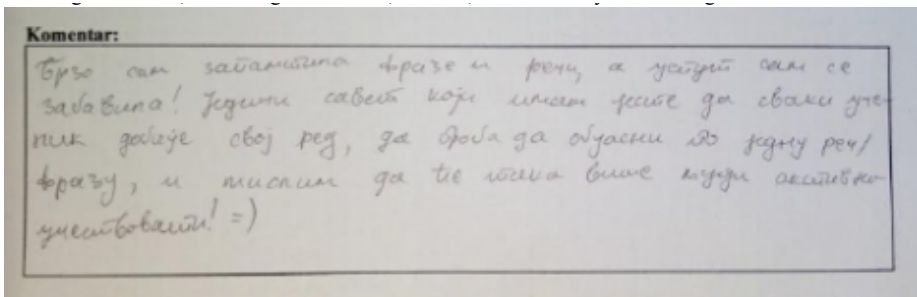 Komentar:
Брзо сам запамтила фразе и речи, а успут сам се
забавила! Једини савет који имам јесте да сваки уче-
ник добије свој ред, да проба да објасни по једну реч/
фразу, и мислим да ће тако више људи активно
учествовати! =)